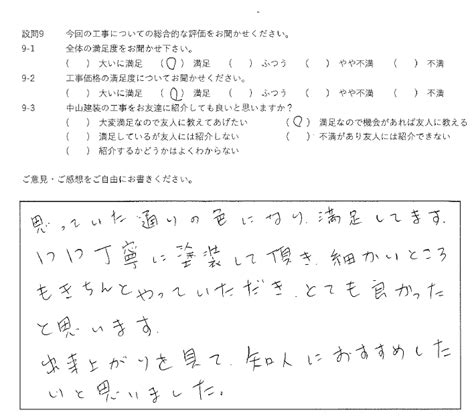 設問9　今回の工事についての総合的な評価をお聞かせください。
9-1　全体の満足度をお聞かせ下さい。
(　) 大いに満足　(○) 満足　(　) ふつう　(　) やや不満　(　) 不満
9-2　工事価格の満足度についてお聞かせください。
(　) 大いに満足　(○) 満足　(　) ふつう　(　) やや不満　(　) 不満
9-3　中山建装の工事をお友達に紹介しても良いと思いますか？
(　) 大変満足なので友人に教えてあげたい　(○) 満足なので機会があれば友人に教える
(　) 満足しているが友人には紹介しない　(　) 不満があり友人には紹介できない
(　) 紹介するかどうかはよくわからない
ご意見・ご感想をご自由にお書きください。
思っていた通りの色になり、満足してます。
1つ1つ丁寧に塗装して頂き、細かいところ
もきちんとやっていただき、とても良かった
と思います。
出来上がりを見て、知人におすすめした
いと思いました。